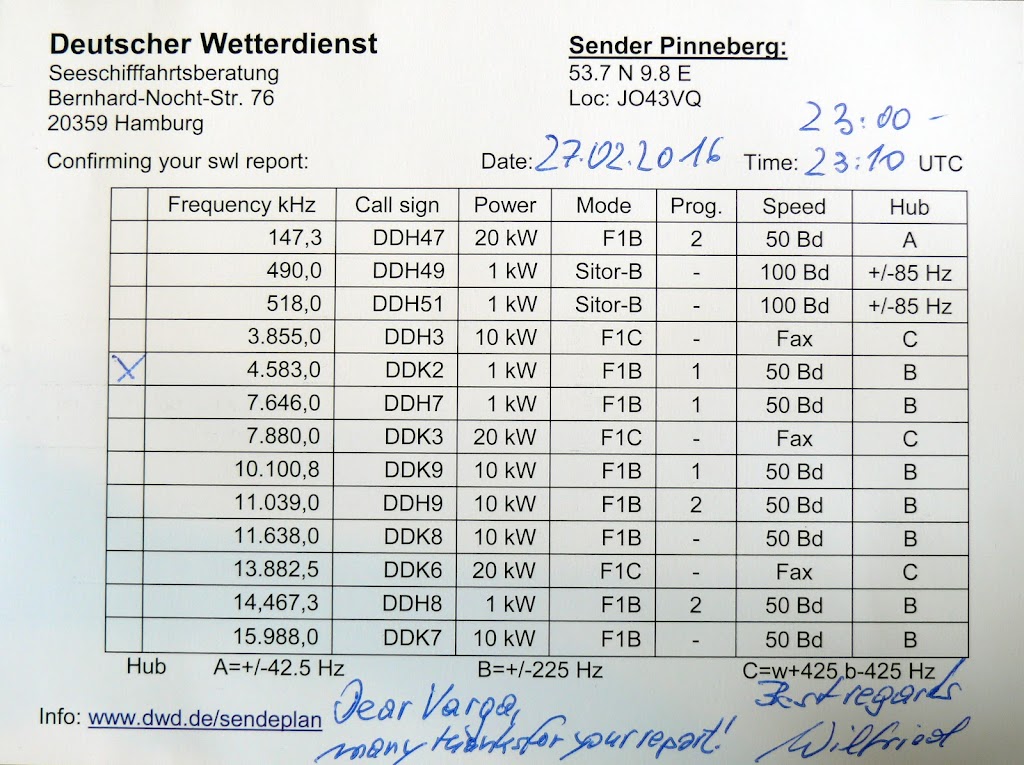 Deutscher Wetterdienst
Seeschifffahrtsberatung
Bernhard-Nocht-Str. 76
20359 Hamburg
Sender Pinneberg:
53.7 N 9.8 E
Loc: JO43VQ
23:00 -
Confirming your swl report: Date: 27.02.2016 Time: 23:10 UTC
Frequency kHz Call sign Power Mode Prog. Speed Hub
147,3 DDH47 20 kW F1B 2 50 Bd A
490,0 DDH49 1 kW Sitor-B - 100 Bd +/-85 Hz
518,0 DDH51 1 kW Sitor-B - 100 Bd +/-85 Hz
3.855,0 DDH3 10 kW F1C - Fax C
X 4.583,0 DDK2 1 kW F1B 1 50 Bd B
7.646,0 DDH7 1 kW F1B 1 50 Bd B
7.880,0 DDK3 20 kW F1C - Fax C
10.100,8 DDK9 10 kW F1B 1 50 Bd B
11.039,0 DDH9 10 kW F1B 2 50 Bd B
11.638,0 DDK8 10 kW F1B - 50 Bd B
13.882,5 DDK6 20 kW F1C - Fax C
14,467,3 DDH8 1 kW F1B 2 50 Bd B
15.988,0 DDK7 10 kW F1B - 50 Bd B
Hub A=+/-42.5 Hz B=+/-225 Hz C=w+425,b-425 Hz
Info: www.dwd.de/sendeplan
Dear Varga,
many thanks for your report!
Best regards
Wilfried